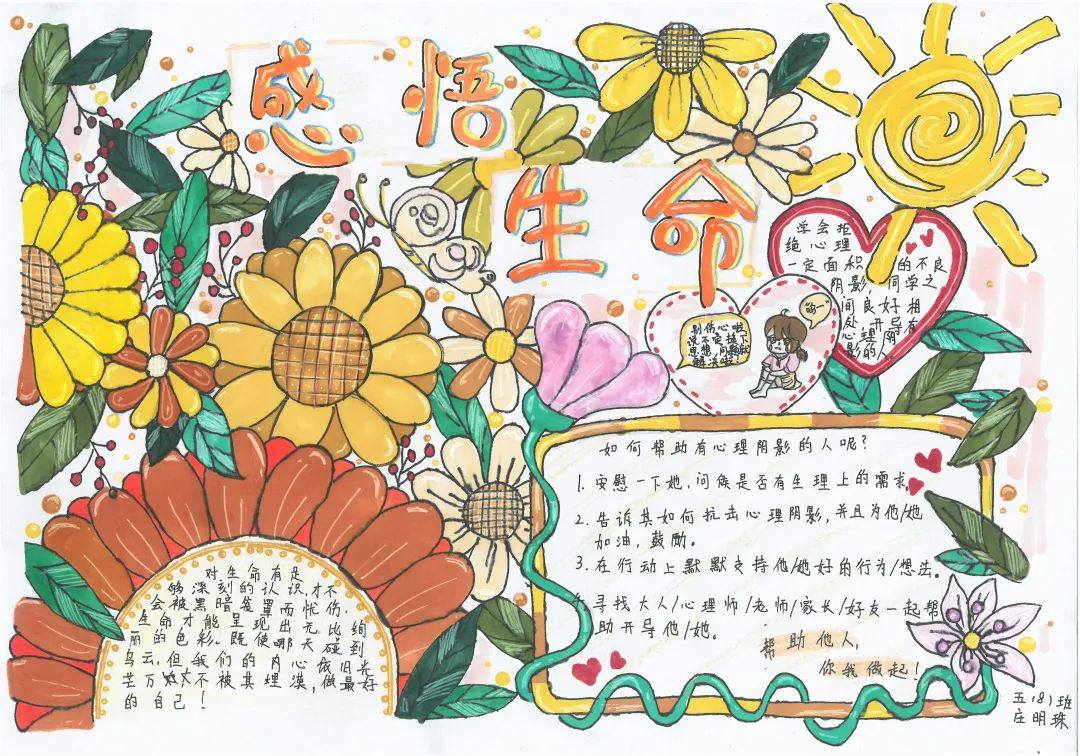 感悟
生命
学会拒
绝心理
一定面积的不良
阴影，同学之
间良好相
处，开导有
心理阴
影的人。
别伤心啦
说不定接下
思想问题就
解决啦
嗨~
如何帮助有心理阴影的人呢？
1. 安慰一下她，问候是否有生理上的需求。
2. 告诉其如何抗击心理阴影，并且为他/她
加油，鼓励。
3. 在行动上默默支持他/她好的行为/想法。
寻找大人/心理师/老师/家长/好友一起帮
助开导他/她。
帮助他人，
你我做起！
对生命有足
够深刻的认识，才不
会被黑暗笼罩而忧伤，
生命才能呈现出无比绚
丽的色彩。既使哪天碰到
乌云，但我们的内心依旧光
芒万丈不被其埋漠，做最好
的自己！
五（8）班
庄明珠